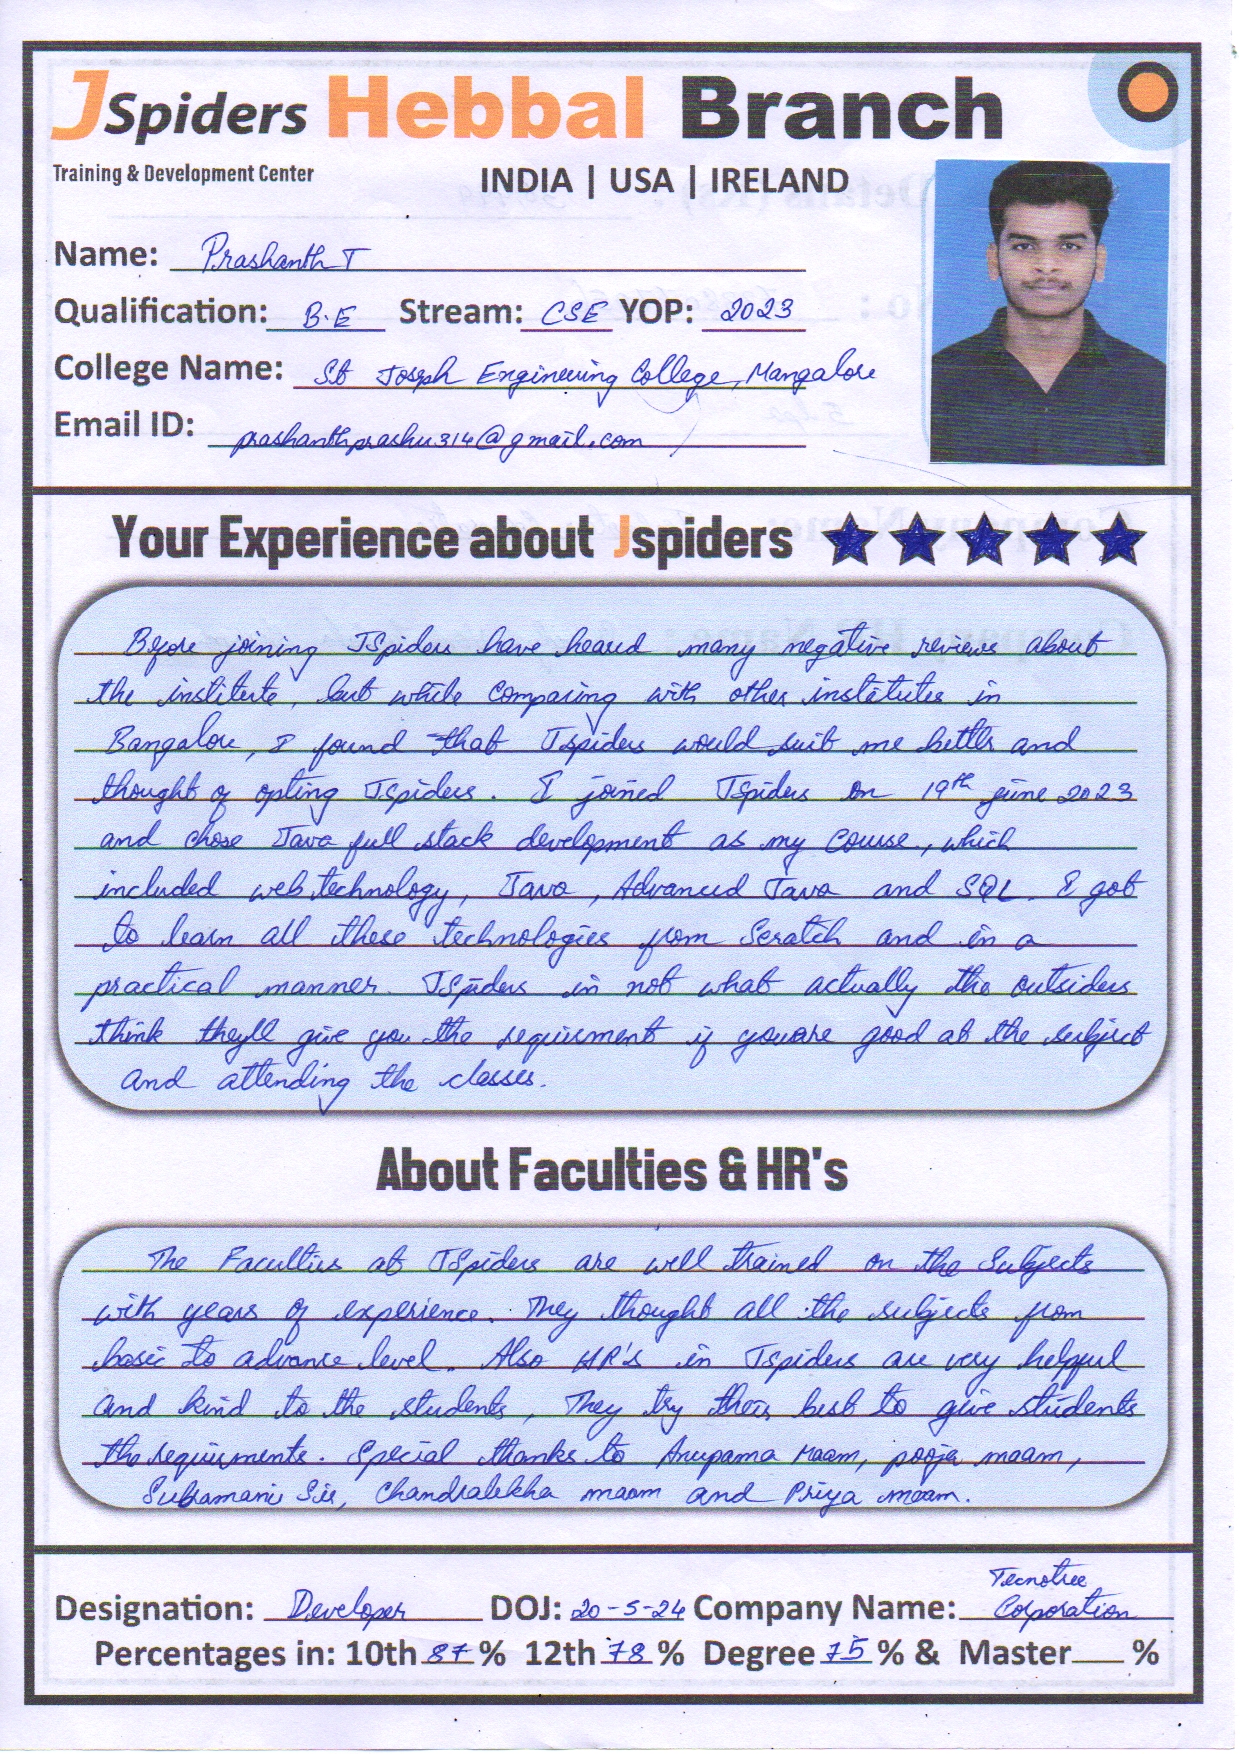 JSpiders Hebbal Branch
Training & Development Center
INDIA | USA | IRELAND
Name: Prashanth T
Qualification: B.E Stream: CSE YOP: 2023
College Name: St Joseph Engineering College, Mangalore
Email ID: prashanthprashu314@gmail.com
Your Experience about Jspiders
Before joining JSpiders have heared many negative reviews about
the institute, but while comparing with other institutes in
Bangalore, I found that Jspiders would suit me better and
thought of opting JSpiders. I joined JSpiders on 19th june 2023
and chose Java full stack development as my course, which
included web technology, Java, Advanced Java and SQL. I got
to learn all these technologies from Scratch and in a
practical manner. JSpiders in not what actually the outsiders
think they'll give you the requirment if you are good at the subject
and attending the classes.
About Faculties & HR's
The Faculties at JSpiders are well trained on the Subjects
with years of experience. They thought all the subjects from
basic to advance level. Also HR's in Jspiders are very helpful
and kind to the students, They try their best to give students
the requirments. Special thanks to Anupama Maam, pooja maam,
Subramani Sir, Chandralekha maam and Priya maam.
Designation: Developer DOJ: 20-5-24 Company Name: Tecnotree Corporation
Percentages in: 10th 87% 12th 78% Degree 75% & Master %